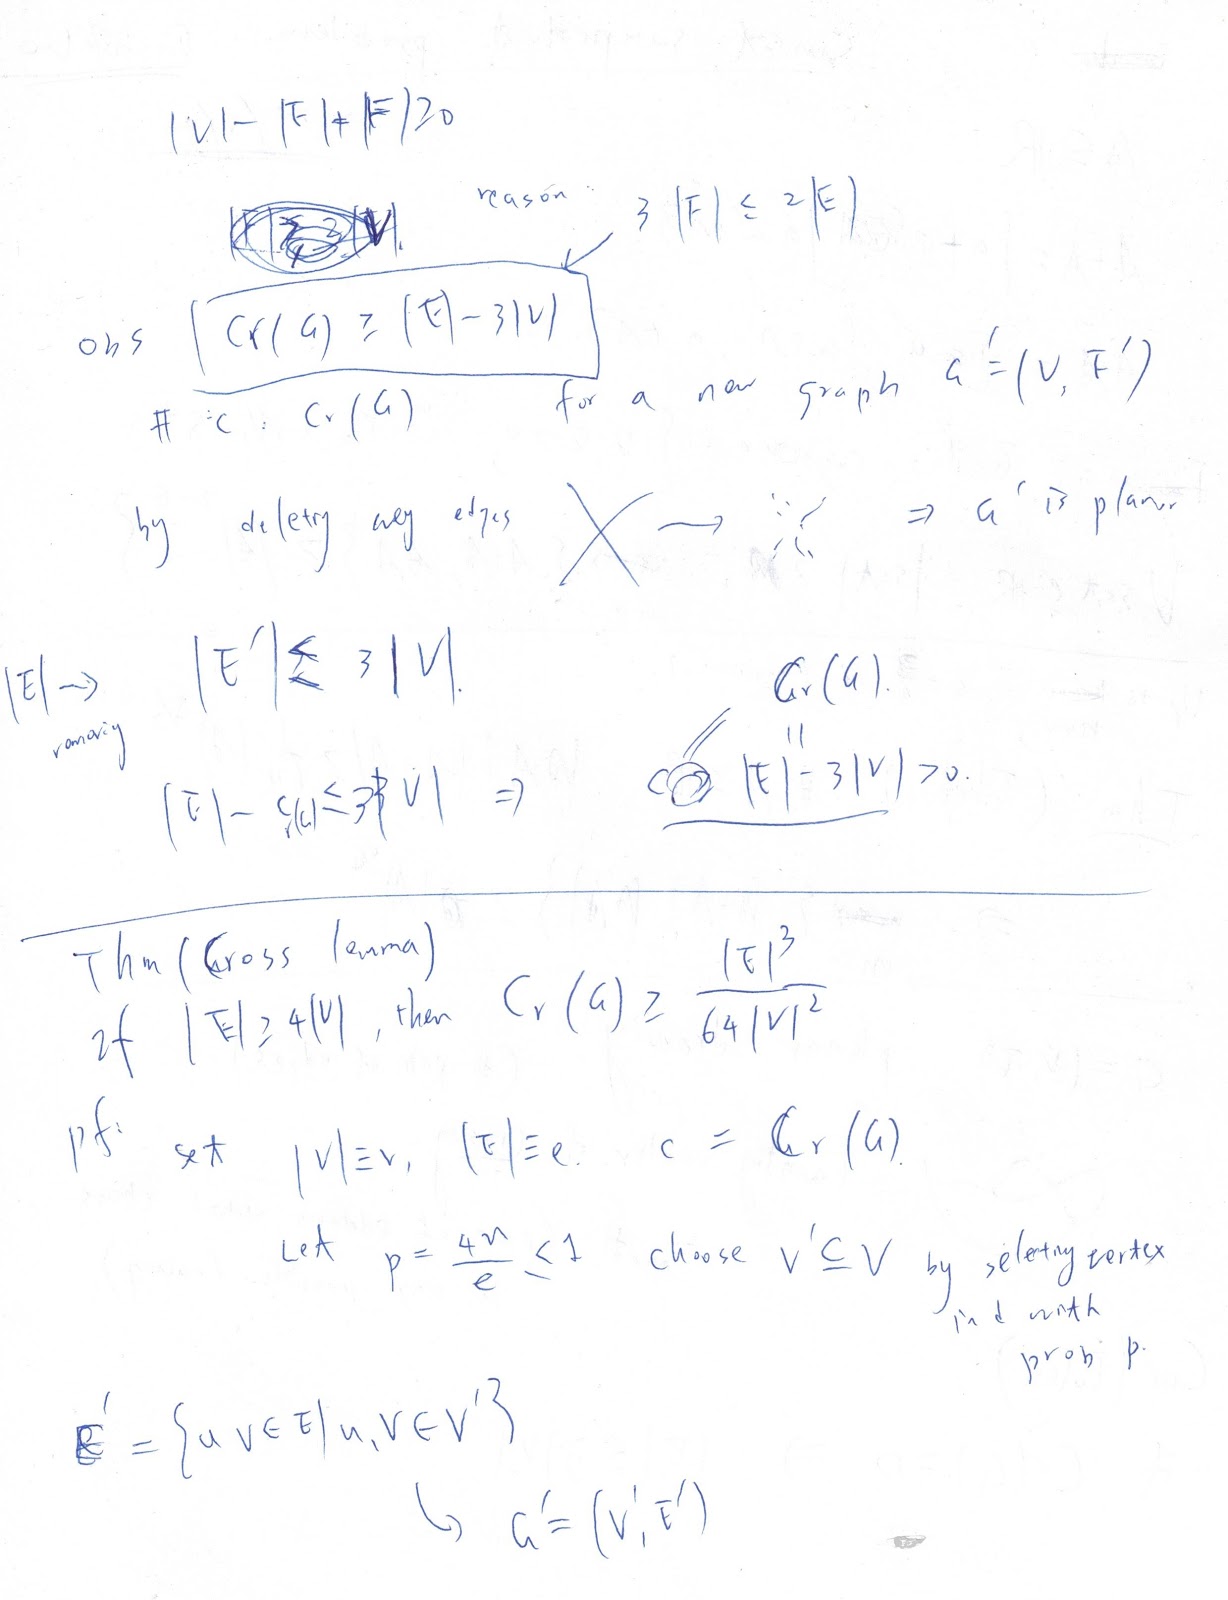 |V| - |E| + |F| ≥ 0
reason: 3|F| ≤ 2|E|
obs Cr(G) ≥ |E| - 3|V|
# c : Cr(G) for a new graph G' = (V, E')
by deleting edges → ⇒ G' is planar
|E| → |E'| ≤ 3|V|.
removing Cr(G).
|E| - cr(G) ≤ 3|V| ⇒ |E| - 3|V| > 0.
Thm (Cross lemma)
If |E| ≥ 4|V|, then Cr(G) ≥ |E|³ / 64|V|²
pf: set |V| ≡ v, |E| ≡ e. c = Cr(G).
Let p = 4n/e ≤ 1 choose V' ⊆ V by selecting vertex
ind with
prob p.
E' = {uv ∈ E | u, v ∈ V'}
↳ G' = (V', E')